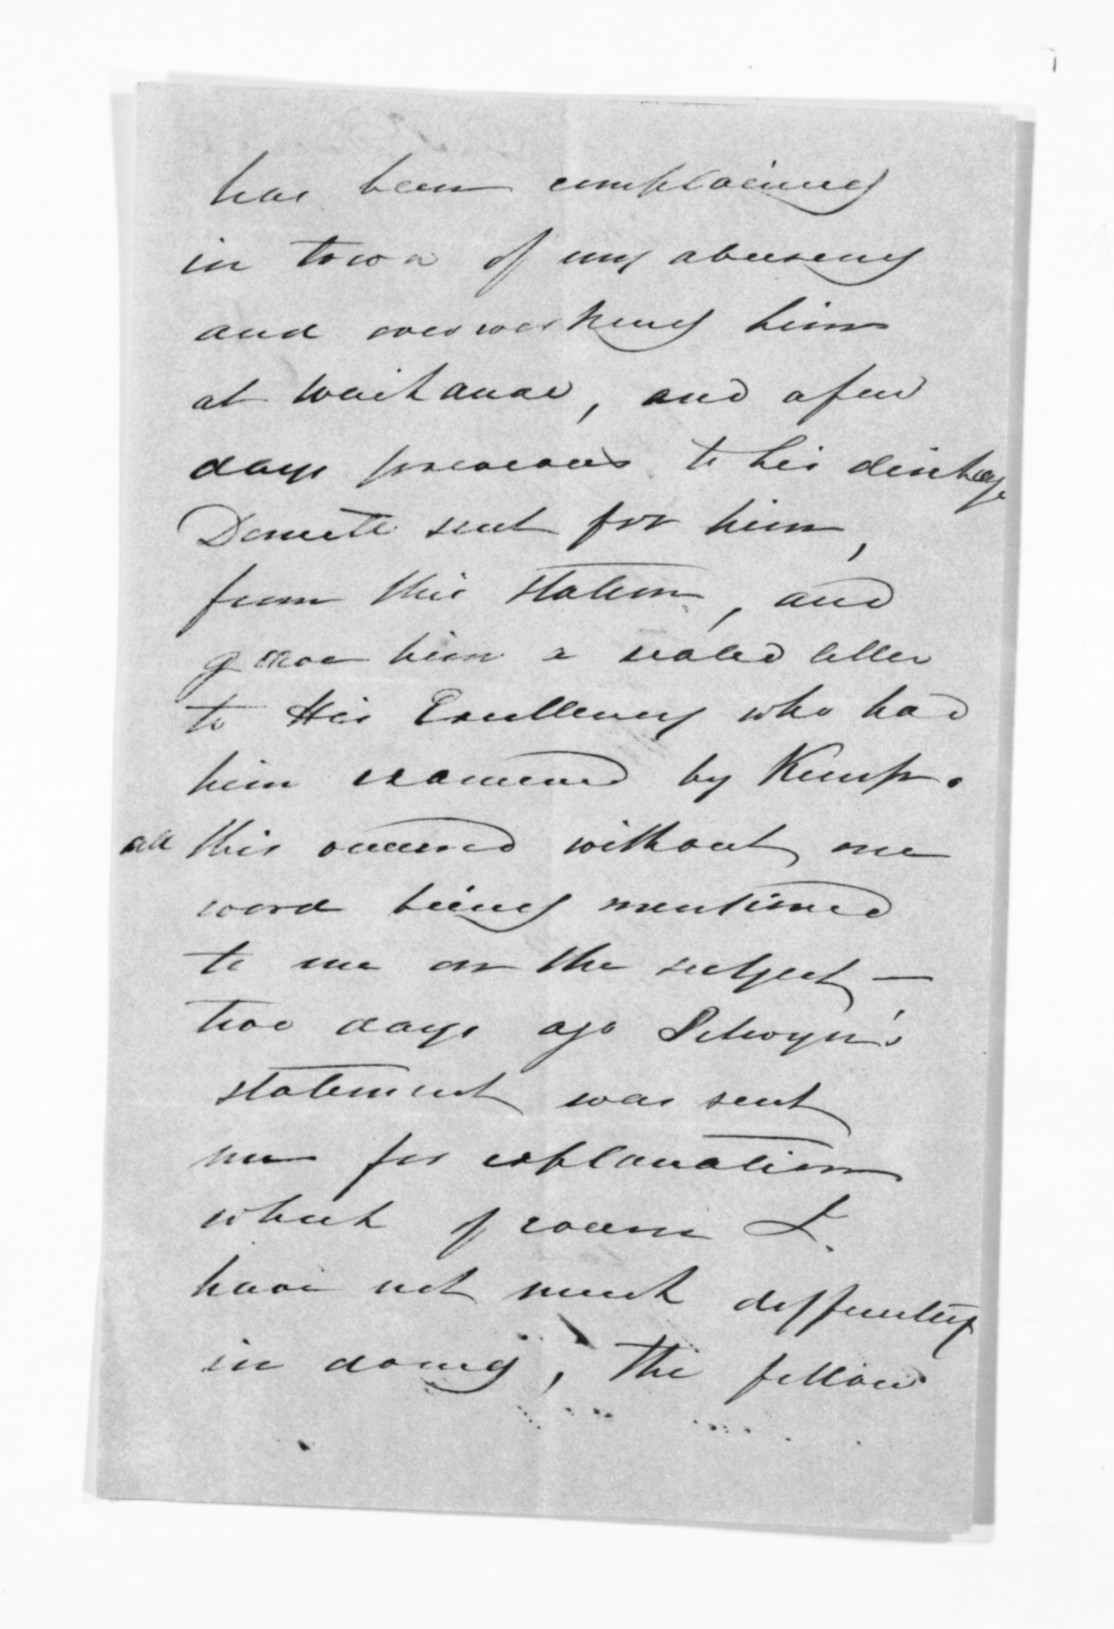 has been complaining
in town of my abuseing
and overworking him
at Waikanae, and a few
days previous to his discharge
Durie sent for him,
from this station, and
gave him a sealed letter
to His Excellency who had
him examined by Kemp.
all this occurred without one
word being mentioned
to me on the subject —
two days ago Selwyn's
statement was sent
me for explanation
which of course I
have not much difficulty
in doing, the fellow